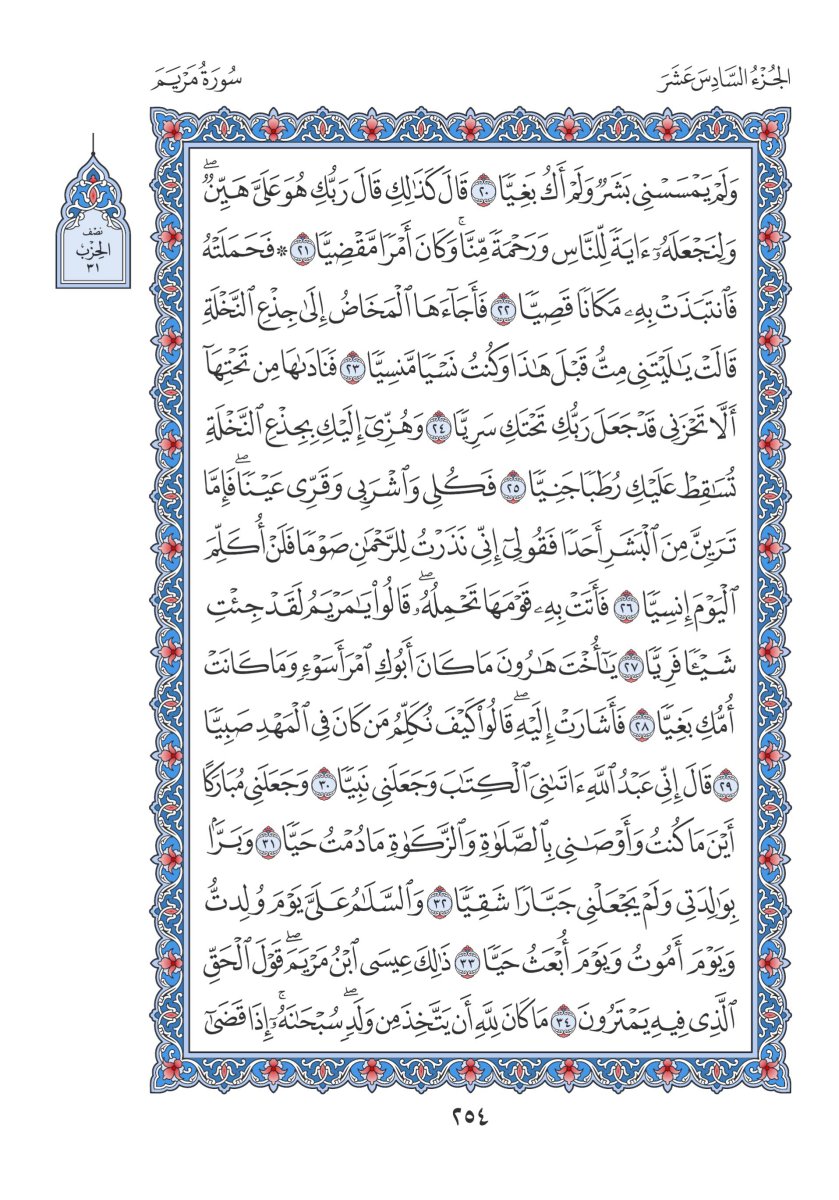 الجُزْءُ السَّادِسَ عَشَرَ
سُورَةُ مَرْيَمَ
نصف
الحِزْب
٣١
وَلَمْ يَمْسَسْنِى بَشَرٌ وَلَمْ أَكُ بَغِيًّا ٢٠ قَالَ كَذَٰلِكِ قَالَ رَبُّكِ هُوَ عَلَىَّ هَيِّنٌۖ
وَلِنَجْعَلَهُۥٓ ءَايَةً لِّلنَّاسِ وَرَحْمَةً مِّنَّاۚ وَكَانَ أَمْرًا مَّقْضِيًّا ٢١ * فَحَمَلَتْهُ
فَٱنتَبَذَتْ بِهِۦ مَكَانًا قَصِيًّا ٢٢ فَأَجَآءَهَا ٱلْمَخَاضُ إِلَىٰ جِذْعِ ٱلنَّخْلَةِ
قَالَتْ يَٰلَيْتَنِى مِتُّ قَبْلَ هَٰذَا وَكُنتُ نَسْيًا مَّنسِيًّا ٢٣ فَنَادَىٰهَا مِن تَحْتِهَآ
أَلَّا تَحْزَنِى قَدْ جَعَلَ رَبُّكِ تَحْتَكِ سَرِيًّا ٢٤ وَهُزِّىٓ إِلَيْكِ بِجِذْعِ ٱلنَّخْلَةِ
تُسَٰقِطْ عَلَيْكِ رُطَبًا جَنِيًّا ٢٥ فَكُلِى وَٱشْرَبِى وَقَرِّى عَيْنًاۖ فَإِمَّا
تَرَيِنَّ مِنَ ٱلْبَشَرِ أَحَدًا فَقُولِىٓ إِنِّى نَذَرْتُ لِلرَّحْمَٰنِ صَوْمًا فَلَنْ أُكَلِّمَ
ٱلْيَوْمَ إِنسِيًّا ٢٦ فَأَتَتْ بِهِۦ قَوْمَهَا تَحْمِلُهُۥۖ قَالُوا۟ يَٰمَرْيَمُ لَقَدْ جِئْتِ
شَيْـًٔا فَرِيًّا ٢٧ يَٰٓأُخْتَ هَٰرُونَ مَا كَانَ أَبُوكِ ٱمْرَأَ سَوْءٍ وَمَا كَانَتْ
أُمُّكِ بَغِيًّا ٢٨ فَأَشَارَتْ إِلَيْهِۖ قَالُوا۟ كَيْفَ نُكَلِّمُ مَن كَانَ فِى ٱلْمَهْدِ صَبِيًّا
٢٩ قَالَ إِنِّى عَبْدُ ٱللَّهِ ءَاتَىٰنِىَ ٱلْكِتَٰبَ وَجَعَلَنِى نَبِيًّا ٣٠ وَجَعَلَنِى مُبَارَكًا
أَيْنَ مَا كُنتُ وَأَوْصَٰنِى بِٱلصَّلَوٰةِ وَٱلزَّكَوٰةِ مَا دُمْتُ حَيًّا ٣١ وَبَرًّۢا
بِوَٰلِدَتِى وَلَمْ يَجْعَلْنِى جَبَّارًا شَقِيًّا ٣٢ وَٱلسَّلَٰمُ عَلَىَّ يَوْمَ وُلِدتُّ
وَيَوْمَ أَمُوتُ وَيَوْمَ أُبْعَثُ حَيًّا ٣٣ ذَٰلِكَ عِيسَى ٱبْنُ مَرْيَمَۖ قَوْلَ ٱلْحَقِّ
ٱلَّذِى فِيهِ يَمْتَرُونَ ٣٤ مَا كَانَ لِلَّهِ أَن يَتَّخِذَ مِن وَلَدٍۖ سُبْحَٰنَهُۥٓۚ إِذَا قَضَىٰٓ
٢٥٤